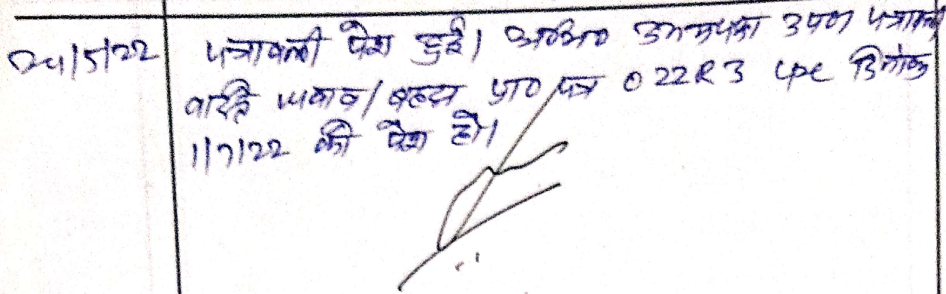 24/5/22 पत्रावली पेश हुई। अभिभा उभयपक्ष उप0 पत्रावली
वास्ते जवाब/बहस प्रा0 पत्र O 22 R 3 CPC दिनांक
1/7/22 को पेश हो।